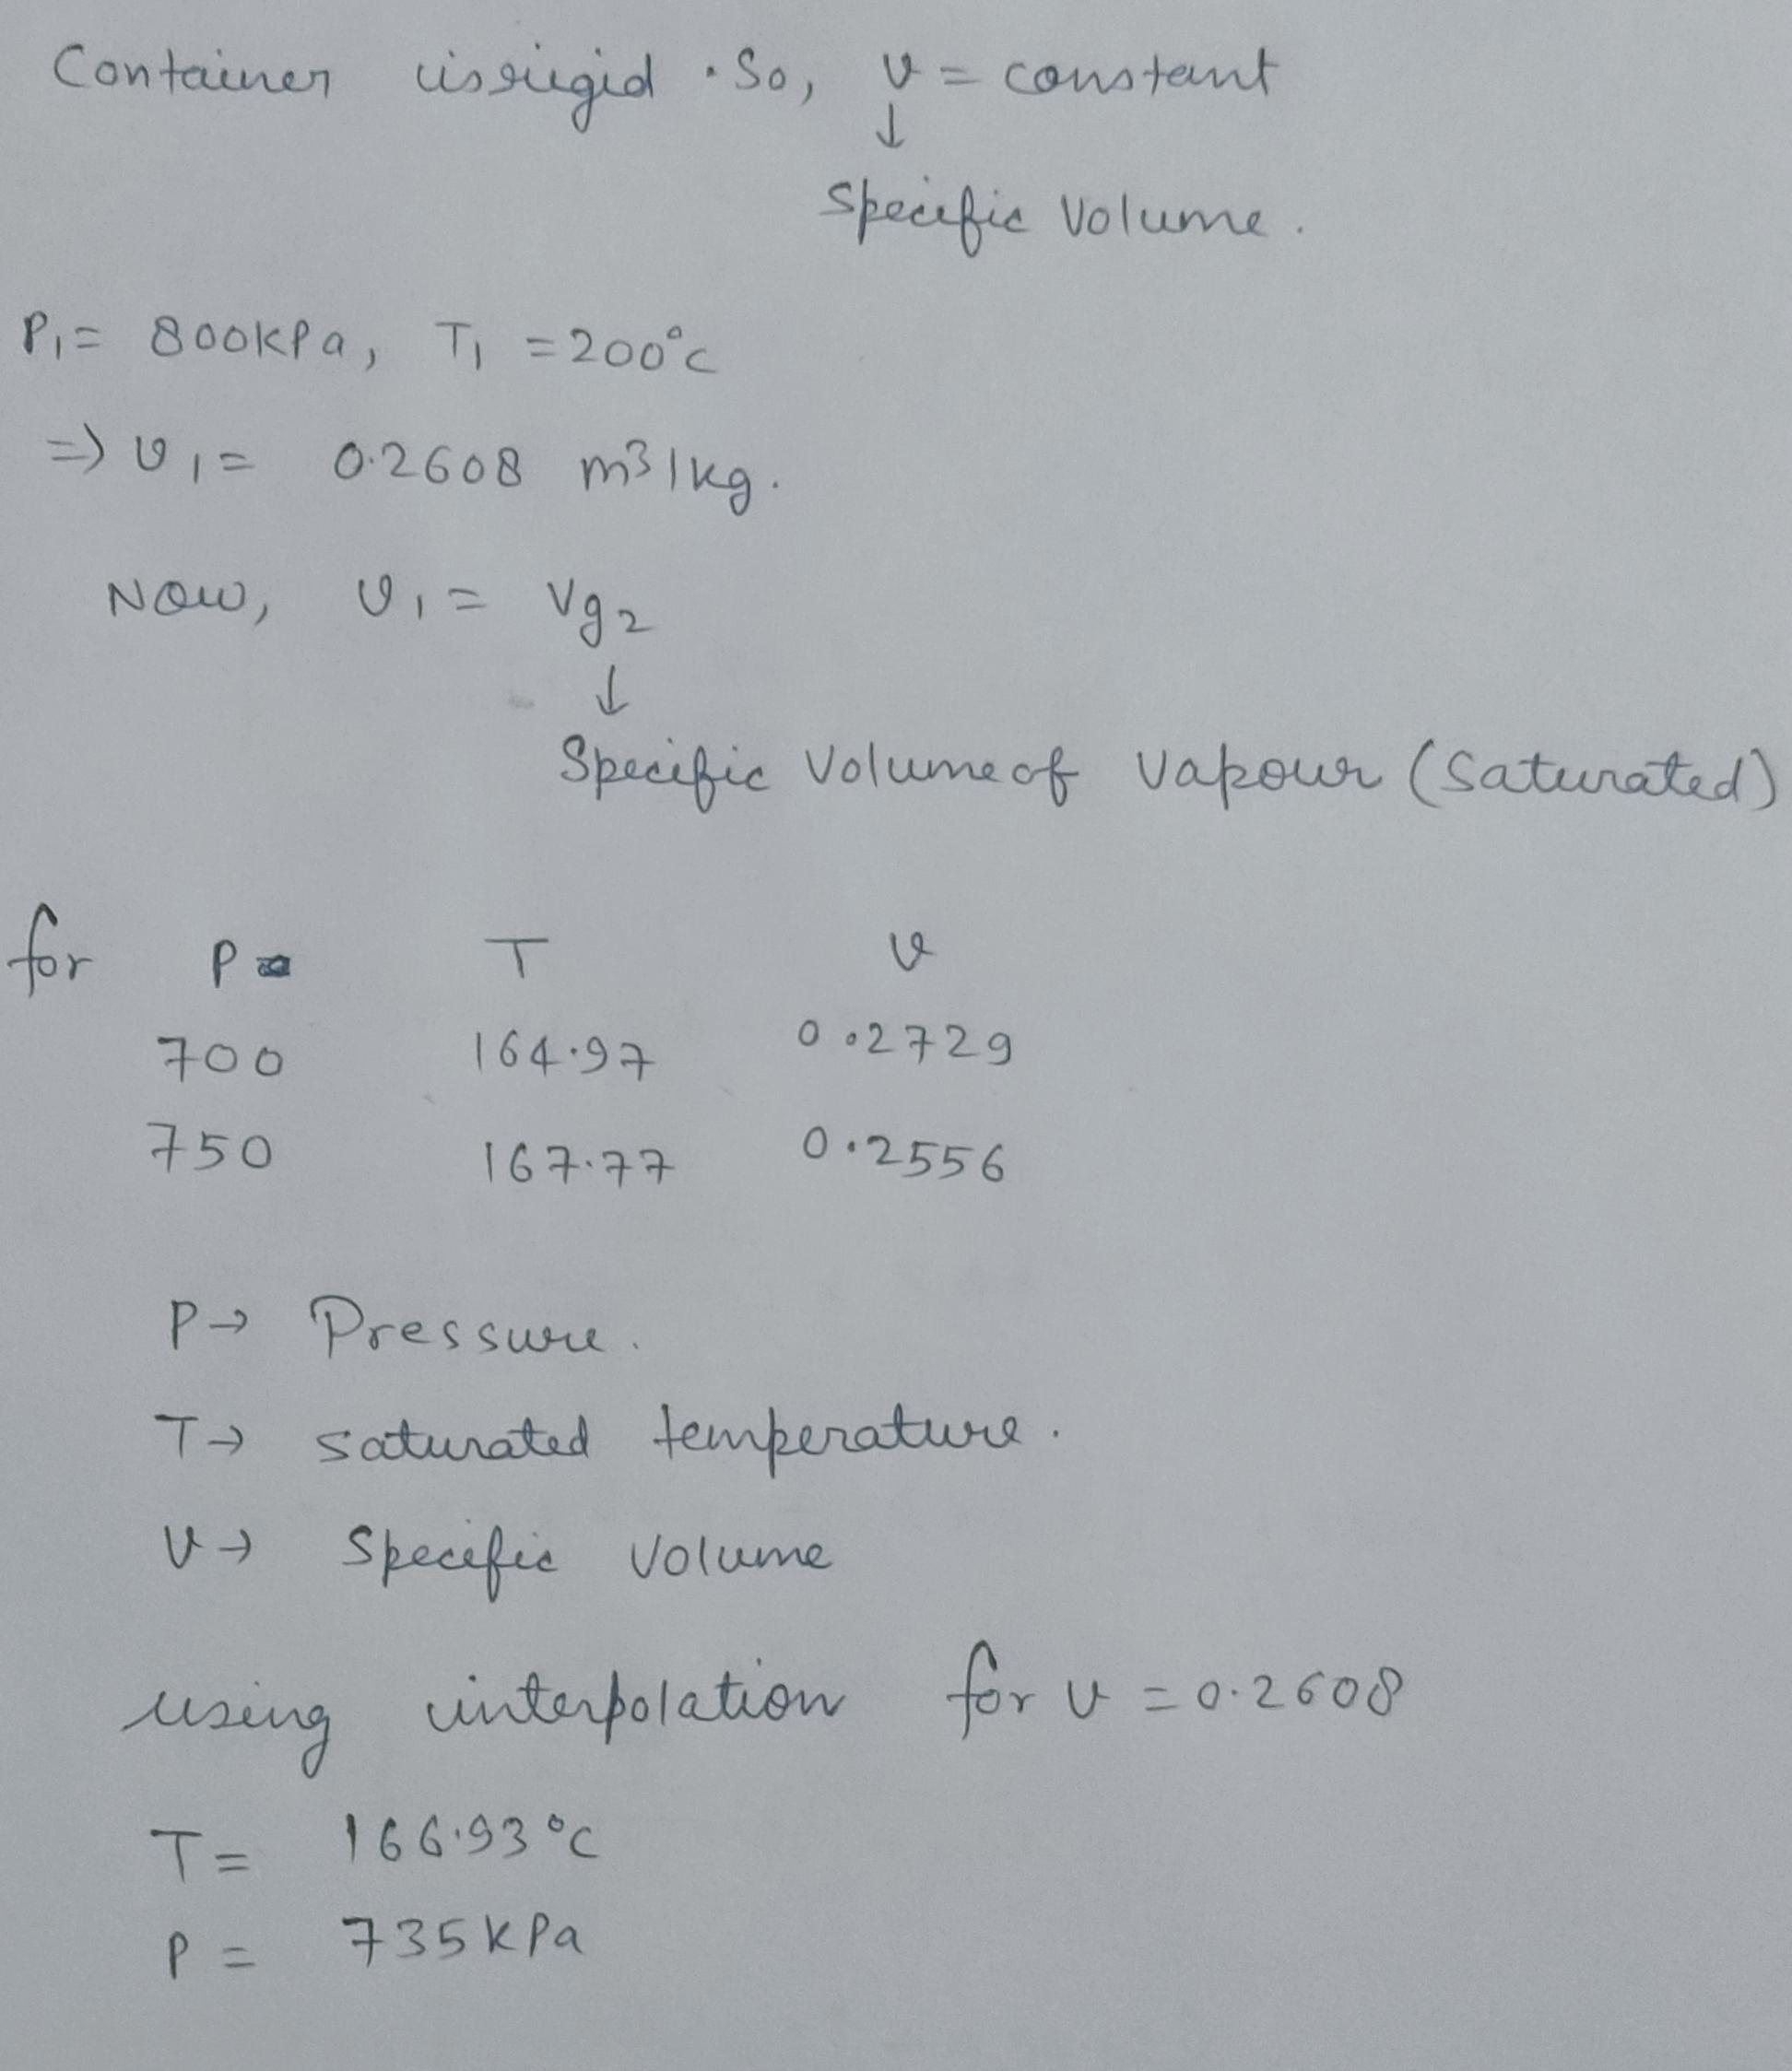 Container is rigid. So, v = constant
↓
Specific Volume.
P₁ = 800kPa, T₁ = 200°C
=> v₁ = 0.2608 m3/kg.
Now, v₁ = Vg₂
↓
Specific Volume of Vapour (Saturated)
for P T v
700 164.97 0.2729
750 167.77 0.2556
P → Pressure.
T → saturated temperature.
v → Specific Volume
using interpolation for v = 0.2608
T = 166.93°C
P = 735kPa